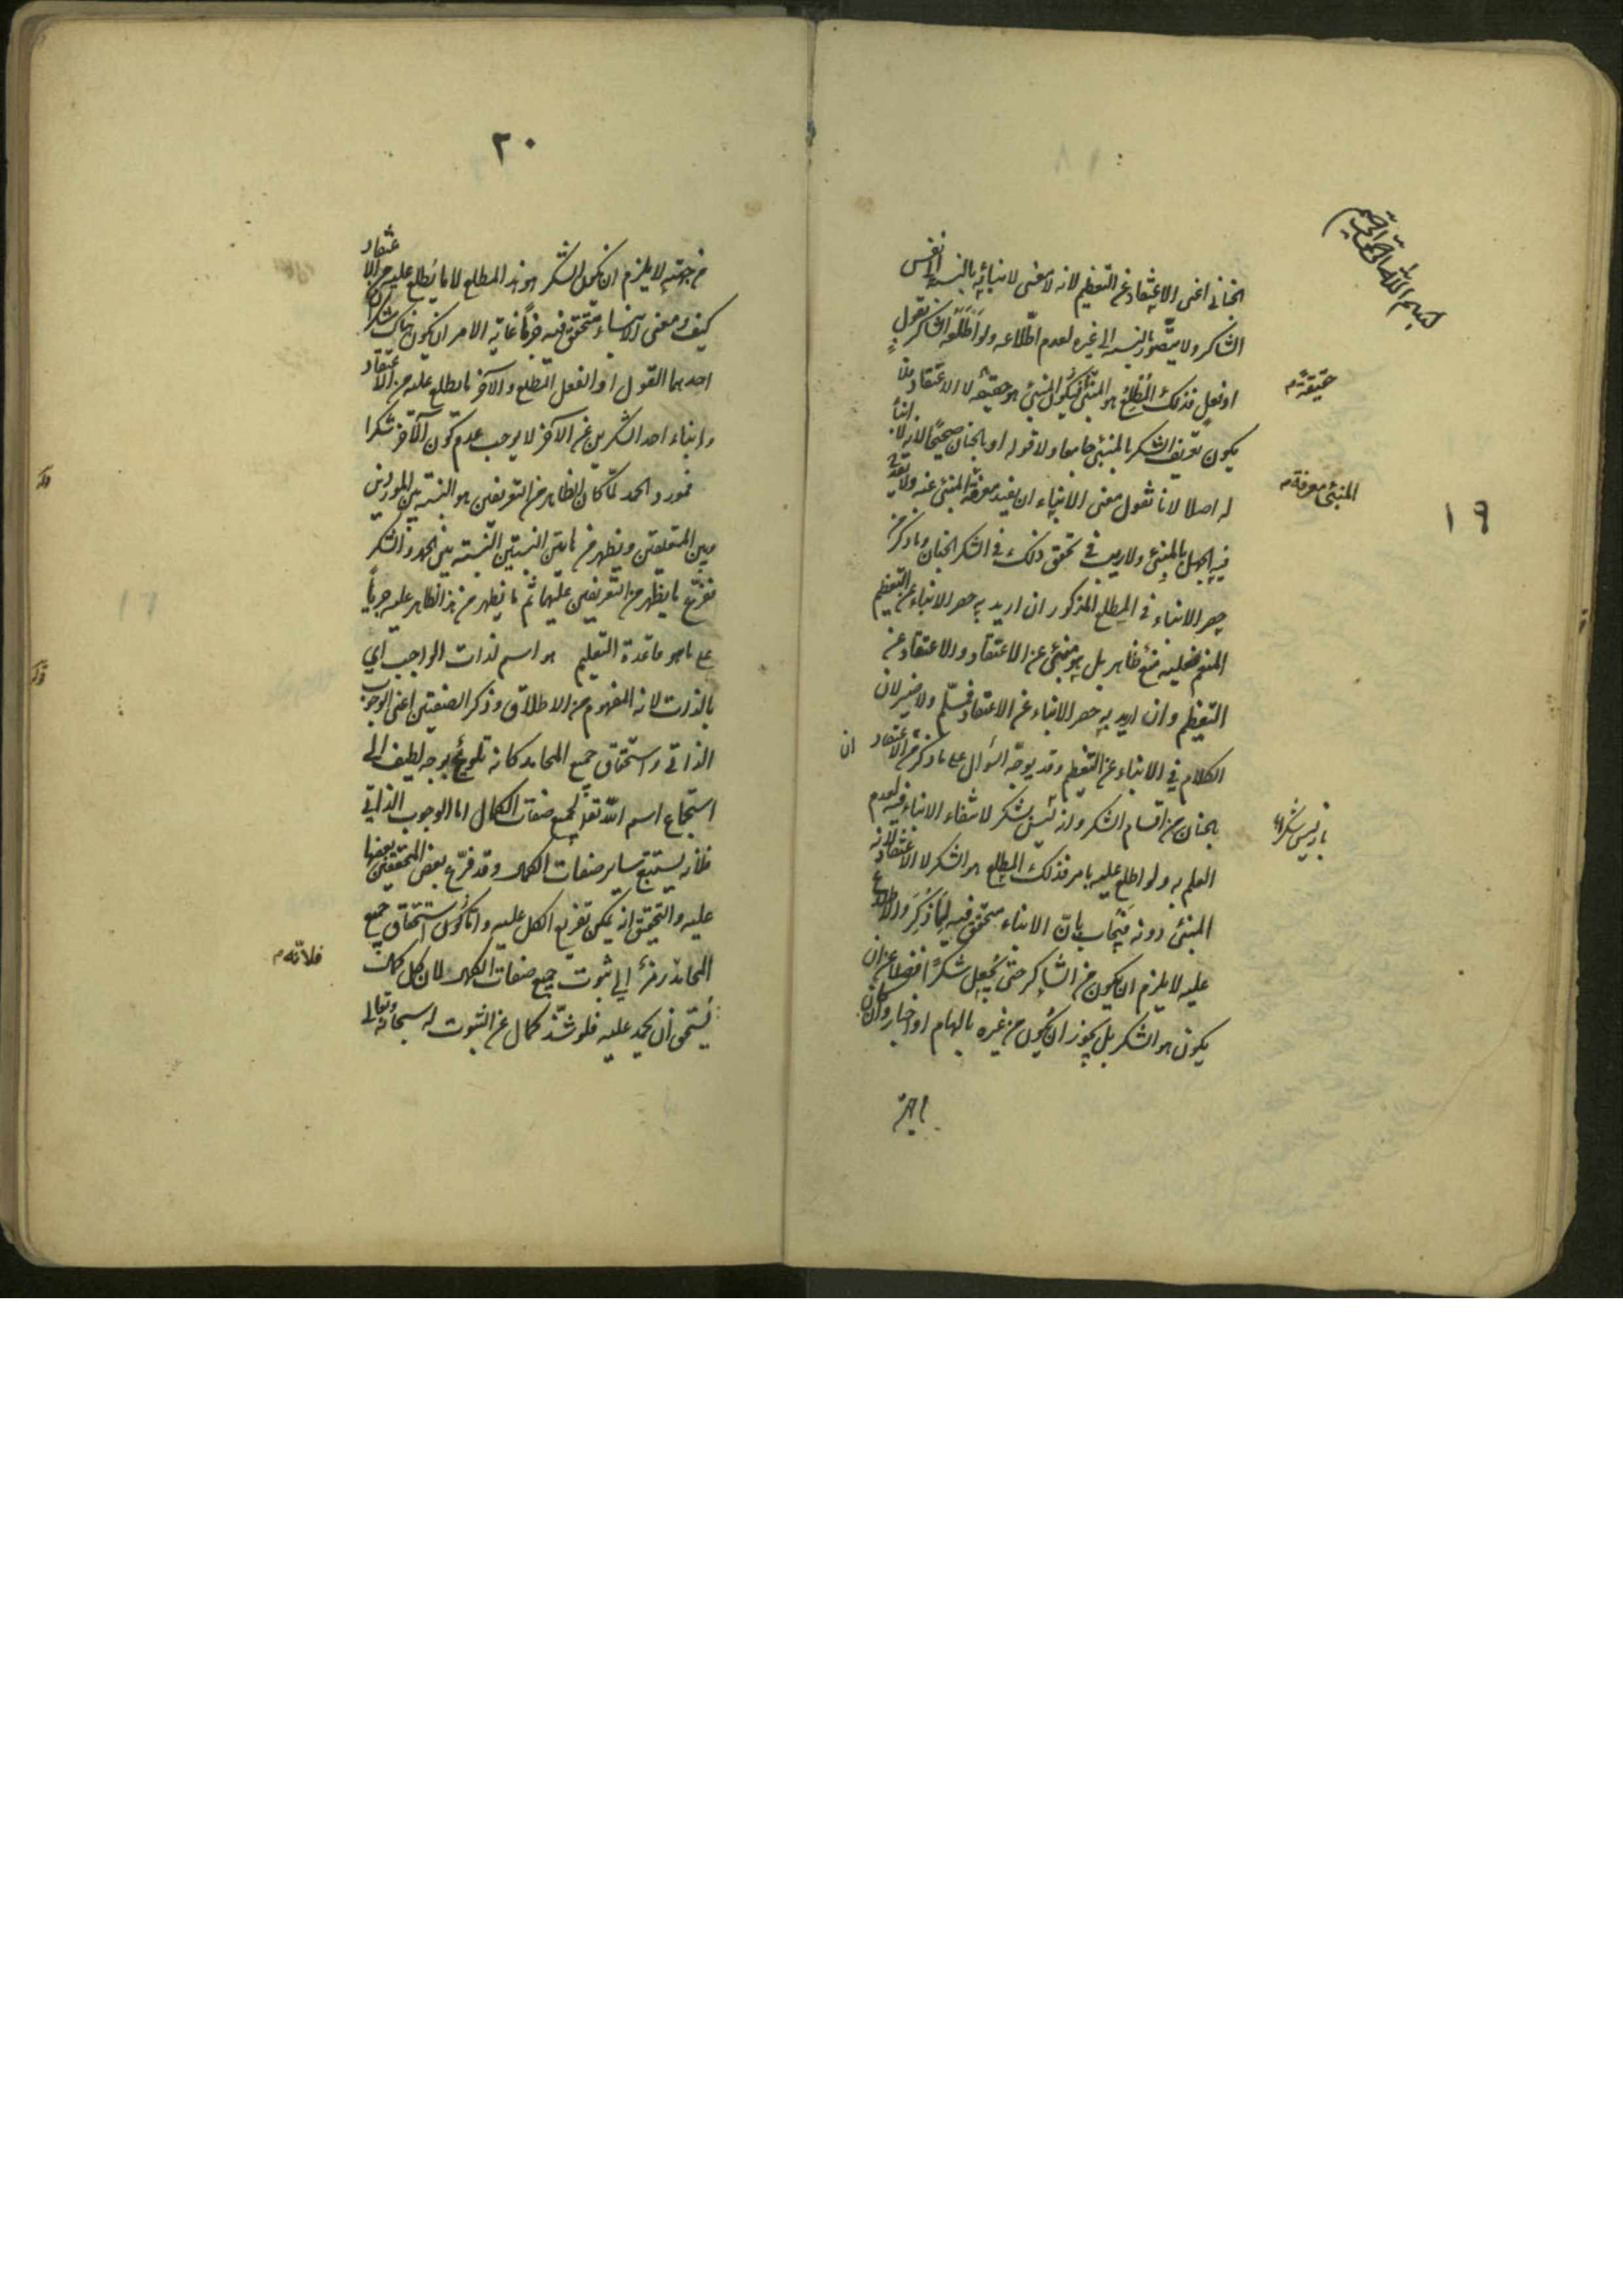 بسم الله الرحمن الرحيم
١٩
الجناني اعني الاعتقاد عن التعظيم لانه لا معنى لانبائه بالنسبة الى نفس
الشاكر ولا يتصور بالنسبة الى غيره لعدم اطلاعه ولو اطلعه الشاكر بقول
او فعل فذلك المطلع هو المنبئ فيكون المنبئ هو حقيقة لا الاعتقاد فلا
حقيقة م
يكون تعريف الشكر بالمنبئ جامعا ولا قوله او بالجنان صحيحا لانه لا انباء
له اصلا لانا نقول معنى الانباء ان يفيد معرفة المنبئ عنه ولا يقدح
المنبئ معرفة م
فيه الجهل بالمنبئ ولا ريب في تحقق ذلك في الشكر الجنان وما ذكر من
حصر الانباء في المطلع المذكور ان اريد به حصر الانباء عن التعظيم
المنع فعليه منع ظاهر بل هو منبئ عن الاعتقاد والاعتقاد عن
التعظيم وان اريد به حصر الانباء عن الاعتقاد فمسلم ولا ضير لان
الكلام في الانباء عن التعظيم وقد يوجه السؤال على ما ذكر من الاعتقاد
ان
بالجنان من اقسام الشكر وانه ليس بشكر لانتفاء الانباء فيه لعدم
العلم به ولو اطلع عليه بامر فذلك المطلع هو الشكر لا الاعتقاد لانه
المنبئ دونه فيجاب بان الانباء متحقق فيه لما ذكر والاطلاع
عليه لا يلزم ان يكون من الشاكر حتى يجعل شكرا فضلا عن ان
يكون هو الشكر بل يجوز ان يكون من غيره بالهام او اخبار وان كان
من جهته
٢٠
من جهته لا يلزم ان يكون الشكر هو هذا المطلع لا ما يطلع عليه من الاعتقاد
كيف ومعنى الانباء متحقق فيه جزما غاية الامر ان يكون هناك شكران
احدهما القول او الفعل المطلع والآخر ما يطلع عليه من الاعتقاد
وانباء احد الشكرين عن الآخر لا يوجب عدم كون الآخر شكرا
فمورد الحمد لما كان الظاهر من التعريفين هو النسبة بين الموردين
وبين المتعلقين ويظهر من هاتين النسبتين النسبة بين الحمد والشكر
فرع ما يظهر من التعريفين عليهما ثم ما يظهر من هذا الظاهر عليه جريا
على ما هو قاعدة التعليم هو اسم لذات الواجب اي
بالذات لانه المفهوم من الاطلاق وذكر الصفتين اعني الوجوب
الذاتي واستحقاق جميع المحامد كانه تلويح بوجه لطيف الى
استجماع اسم الله تعالى لجميع صفات الكمال اما الوجوب الذاتي
فلانه يستتبع ساير صفات الكمال وقد فرع بعض المحققين بعضها
عليه والتحقيق انه يمكن تفريع الكل عليه واما كون استحقاق جميع
المحامد رمزا الى ثبوت جميع صفات الكمال لان كل كمال
فلانه م
يستحق ان يحمد عليه فلو شذ كمال عن الثبوت له سبحانه وتعالى